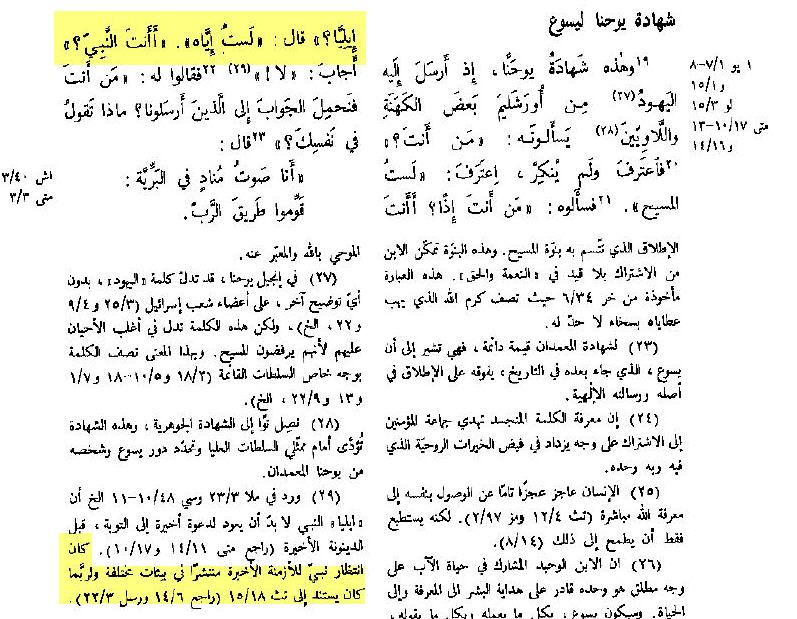 شهادة يوحنا ليسوع
١ يو ١/٧-٨
و١/١٥
لو ٣/١٥
متى ١٧/١٠-١٣
و١٤/١٦
١٩وهٰذه شَهادَةُ يوحَنَّا، إِذ أَرسَلَ إِلَيه
اليَهودُ(٢٧) مِن أُورَشَليمَ بَعضَ الكَهَنَةِ
واللَّاوِيِّينَ(٢٨) يَسأَلونَه: «مَن أَنتَ؟»
٢٠فاعتَرَفَ ولَم يُنكِرْ، اِعتَرَفَ: «لَستُ
المسيح». ٢١فسأَلوه: «مَن أَنتَ إِذًا؟ أَأَنتَ
الإطلاق الذي تتّسم به بنوّة المسيح. وهذه البنوّة تمكّن الابن
من الاشتراك بلا قيد في «النعمة والحق». هذه العبارة
مأخوذة من خر ٣٤/٦ حيث تصف كرم الله الذي يهب
عطاياه بسخاء لا حدّ له.
(٢٣) لشهادة المعمدان قيمة دائمة، فهي تشير إلى أن
يسوع، الذي جاء بعده في التاريخ، يفوقه على الإطلاق في
أصله ورسالته الإلٰهية.
(٢٤) إن معرفة الكلمة المتجسد تهدي جماعة المؤمنين
إلى الاشتراك على وجه يزداد في فيض الخيرات الروحيّة الذي
فيه وبه وحده.
(٢٥) الإنسان عاجز عجزًا تامًا عن الوصول بنفسه إلى
معرفة الله مباشرة (تث ٤/١٢ ومز ٩٧/٢). لكنه يستطيع
فقط أن يطمح إلى ذلك (١٤/٨).
(٢٦) ان الابن الوحيد المشارك في حياة الآب على
وجه مطلق هو وحده قادر على هداية البشر الى المعرفة وإلى
الحياة. وسيكون يسوع، بكل ما يعمله وبكل ما يقوله،
إِيلِيَّا؟» قال: «لَستُ إِيَّاه». «أَأَنتَ النَّبِيّ؟»
أَجابَ: «لا!» (٢٩) ٢٢فقالوا له: «مَن أَنتَ
فنَحمِلَ الجَوابَ إِلى الَّذينَ أَرسَلونا؟ ماذا تَقولُ
في نَفسِكَ؟» ٢٣قال:
«أَنا صَوتُ مُنادٍ في البَرِّيَّة:
قَوِّموا طَريقَ الرَّبّ.
اش ٤٠/٣
متى ٣/٣
الموحي بالله والمعبّر عنه.
(٢٧) في إنجيل يوحنا، قد تدلّ كلمة «اليهود»، بدون
أيّ توضيح آخر، على أعضاء شعب إسرائيل (٣/٢٥ و٤/٩
و٢٢، الخ)، ولكن هذه الكلمة تدل في أغلب الأحيان
عليهم لأنهم يرفضون للمسيح. وبهذا المعنى تصف الكلمة
بوجه خاص السلطات القائمة (٢/١٨ و٥/١٠-١٨ و٧/١
و١٣ و٩/٢٢، الخ).
(٢٨) نصل توًّا إلى الشهادة الجوهرية، وهذه الشهادة
تُؤدّى أمام ممثّلي السلطات العليا وتحدّد دور يسوع وشخصه
من يوحنا المعمدان.
(٢٩) ورد في ملا ٣/٢٣ وسي ٤٨/١٠-١١ الخ أن
«ايليا» النبي لا بدّ أن يعود لدعوة أخيرة إلى التوبة، قبل
الدينونة الأخيرة (راجع متى ١١/١٤ و١٧/١٠). كان
انتظار نبيّ للأزمنة الأخيرة منتشرًا في بيئات مختلفة ولربّما
كان يستند إلى تث ١٨/١٥ (راجع ٦/١٤ ورسل ٣/٢٢).